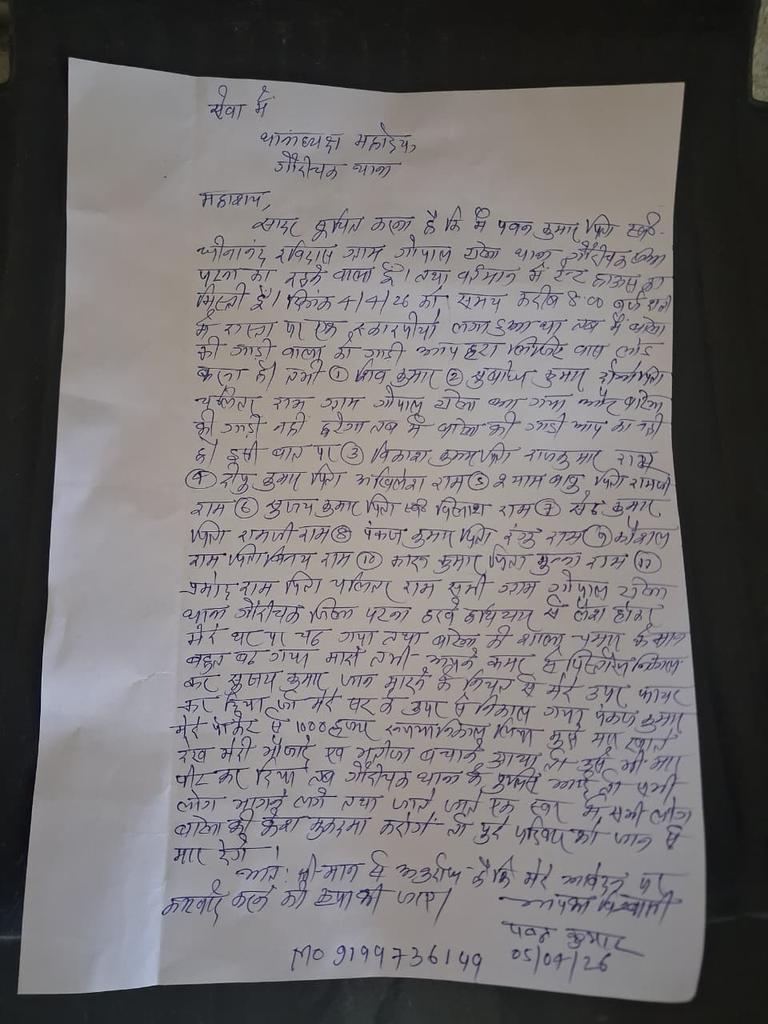 सेवा में
थानाध्यक्ष महोदय,
गौरीचक थाना
महाशय,
सादर सूचित करना है कि मैं पवन कुमार पिता स्व०
रविदास ग्राम गोपाल थाना गौरीचक जिला
पटना का रहने वाला हूँ। तथा वर्तमान में टेन्ट हाउस का
मिस्त्री हूँ। दिनांक 4/4/26 को समय करीब 8:00 बजे रात्री
में रास्ता पर एक स्कारपीयो लगा हुआ था तब मैं बोला
की गाड़ी वाला को गाड़ी आप हटा लिजिए
तभी ① कुमार ② कुमार दोनों पिता
राम ग्राम गोपाल आ गया और बोला
की गाड़ी नहीं हटेगा तब मैं बोला की गाड़ी आप का नहीं
है। इसी बात पर ③ विकाश कुमार पिता राजकुमार राम
④ कुमार पिता अखिलेश राम ⑤ श्याम बाबु पिता रामजी
राम ⑥ सुजय कुमार पिता स्व० राम ⑦ कुमार
पिता रामजी राम ⑧ पंकज कुमार पिता राम ⑨ कौशल
राम पिता राम ⑩ कुमार पिता मुन्ना राम ⑪
प्रमोद राम पिता राम सभी ग्राम गोपाल
थाना गौरीचक जिला पटना हरवे हथियार से लैश होकर
मेरे घर पर चढ़ गया तथा बोला की साला चमार के मन
बहुत बढ़ गया मारो तभी अपने कमर से पिस्तौल निकाल
कर सुजय कुमार जान मारने के नियत से मेरे उपर फायर
कर दिया जो मेरे घर के उपर से निकल गया पंकज कुमार
मेरे पॉकेट से 1000 हजार रूपया निकाल लिया मुझे मार खाते
देख मेरी भौजाई एवं भतीजा बचाने आया तो उसे भी मार
पीट कर दिया तब गौरीचक थाना के पुलिस आई तो सभी
लोग भागने लगे तथा जाते जाते एक स्वर में सभी लोग
बोला की केश मुकदमा करोगे तो पुरे परिवार को जान से
मार देंगे।
अतः श्री मान से अनुरोध है कि मेरे आवेदन पर
कारवाई करने की कृपा की जाए।
आपका विश्वासी
पवन कुमार
05/04/26
MO 9199736149